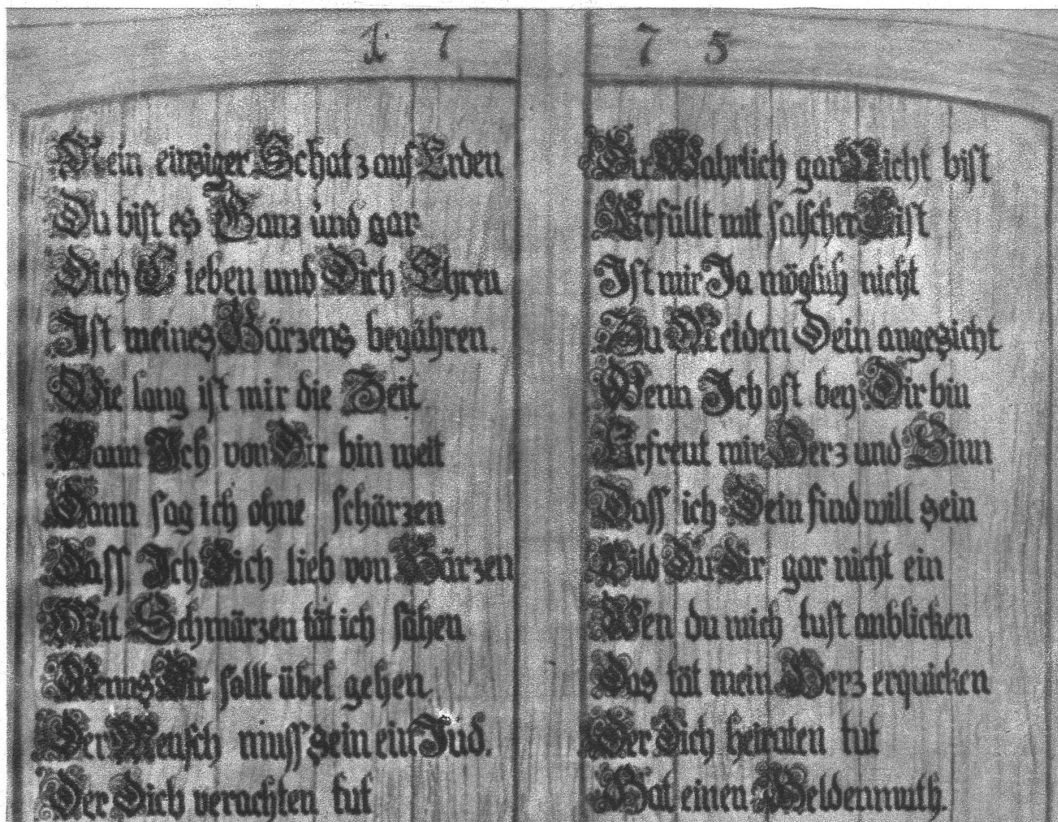 17 75
Mein einziger Schatz auf Erden
Du bist es Ganz und gar
Dich Lieben und Dich Ehren
Ist meines Härzens begähren.
Wie lang ist mir die Zeit
Wann Ich von Dir bin weit
Dann sag ich ohne schärzen
Dass Ich Dich lieb von Härzen
Mit Schmärzen tät ich sähen
Wenns Dir sollt übel gehen.
Der Mensch muss sein ein Jud.
Der Dich verachten tut
Du Wahrlich gar Nicht bist
Erfüllt mit falscher List
Ist mir Ja möglich nicht
Zu Meiden Dein angesicht
Wenn Ich oft bey Dir bin
Erfreut mir Herz und Sinn
Dass ich Dein find will sein
Bild Du Dir gar nicht ein
Wen du mich tust anblicken
Das tät mein Herz erquicken
Wer Dich heiraten tut
Hat einen Heldenmuth.